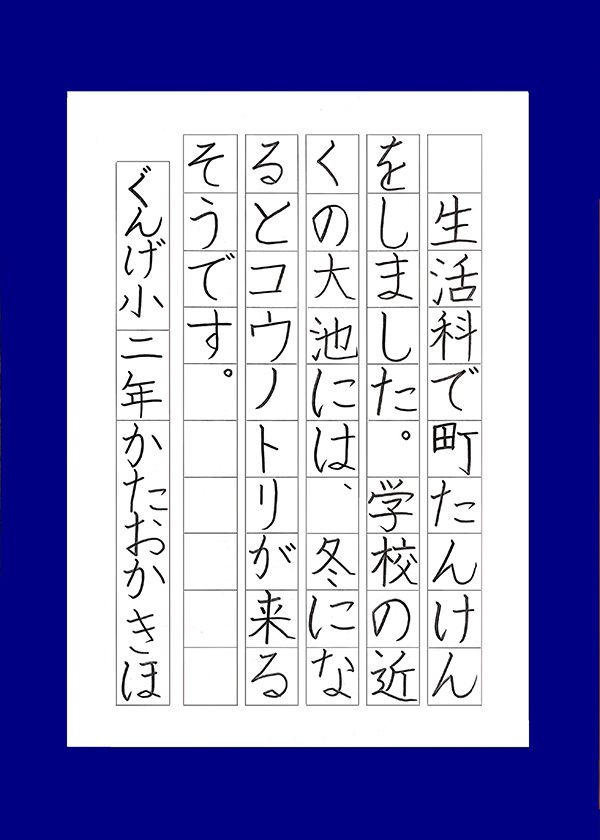 生活科で町たんけん
をしました。学校の近
くの大池には、冬にな
るとコウノトリが来る
そうです。
ぐんげ小二年かたおかきほ